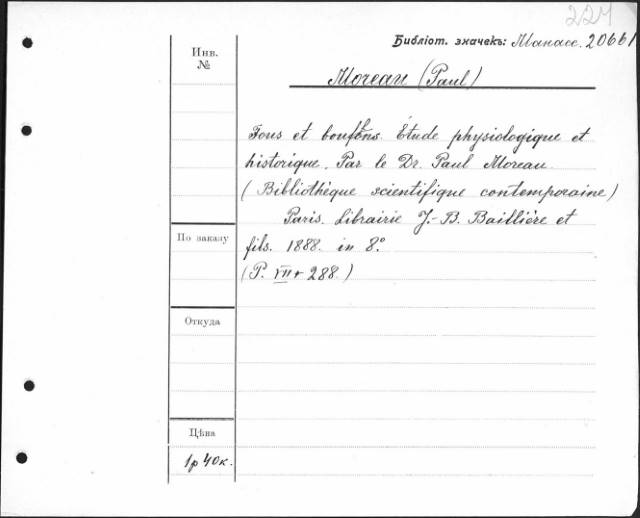 224
Библіот. значекъ: Манасс. 20661
Инв. №
Moreau (Paul)
Fous et bouffons. Étude physiologique et
historique. Par le Dr. Paul Moreau.
(Bibliothèque scientifique contemporaine)
Paris. Librairie J.-B. Baillière et
fils. 1888. in 8.°
(P. VII + 288.)
По заказу
Откуда
Цѣна
1р 40к.